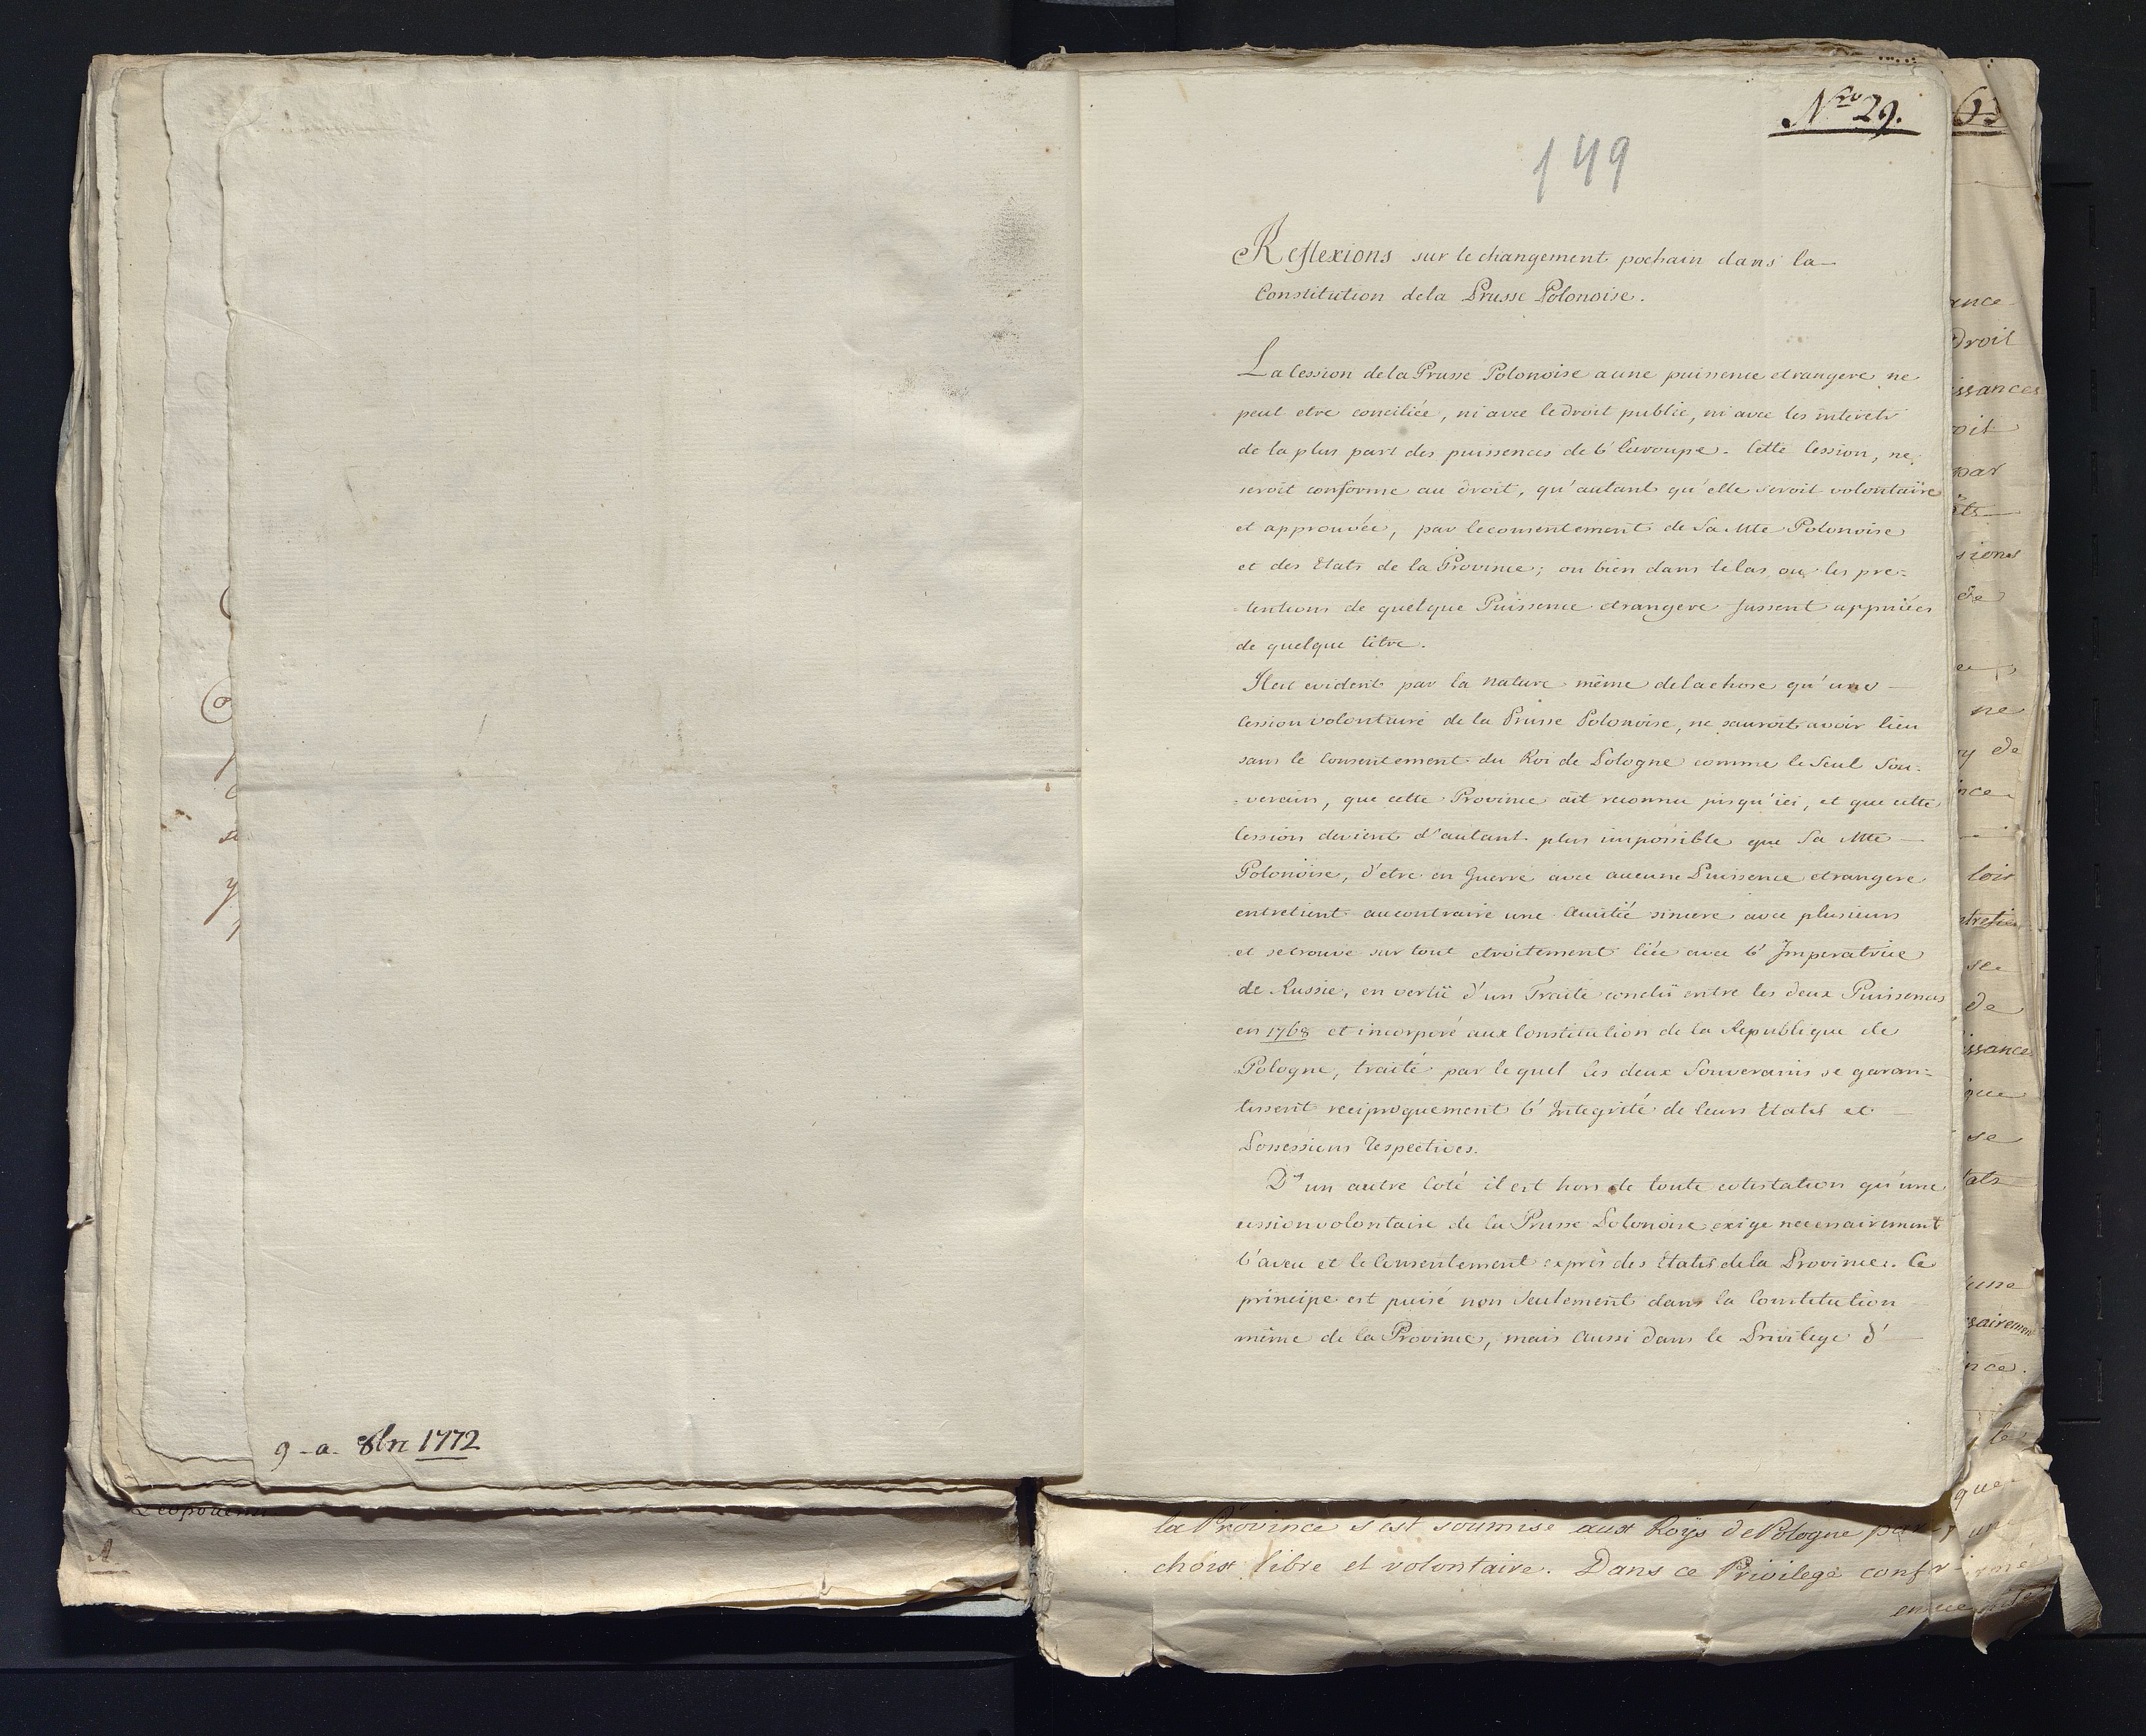 9 - a. 8br 1772
Nro 29.
149
Reflexions sur le changement pochain dans la
Constitution de la Prusse Polonoise.
La Cession de la Prusse Polonoise a une puissence etrangere ne
peut etre conciliée, ni avec le droit public, ni avec les interets
de la plus part des puissences de l'Euroupe. Cette Cession, ne
seroit conforme au droit, qu'autant qu'elle seroit volontaire
et approuvée, par le consentement de Sa Mté Polonoise
et des Etats de la Province; ou bien dans le Cas ou les pre=
=tentions de quelque Puissence etrangere fussent appuiées
de quelque titre.
Il est evident par la nature même de la chose qu'une
Cession volontaire de la Prusse Polonoise, ne sauroit avoir lieu
sans le Consentement du Roi de Pologne comme le Seul Sou=
=verain, que cette Province ait reconnu jusqu'ici, et que cette
Cession devient d'autant plus impossible que Sa Mté
Polonoise, d'etre en Guerre avec aucune Puissence etrangere
entretient aucontraire une Amitié sincere avec plusieurs
et se trouve sur tout etroitement liée avec l'Imperatrice
de Russie, en vertü d'un Traité conclü entre les deux Puissences
en 1768 et incorporé aux Constitution de la Republique de
Pologne, traité par le quel les deux Souverains se garan=
tissent reciproquement l'Integrité de leurs Etats et
Possessions Respectives.
D'un autre Coté il est hors de toute cotestation qu'une
cession volontaire de la Prusse Polonoise exige necessairement
l'aveu et le Consentement exprès des Etats de la Province. Ce
principe est puisé non Seulement dans la Constitution
même de la Province, mais aussi dans le Privilege d'
la Province s'est soumise aux Roys de Pologne par un
choix libre et volontaire. Dans ce Privilege confirmé